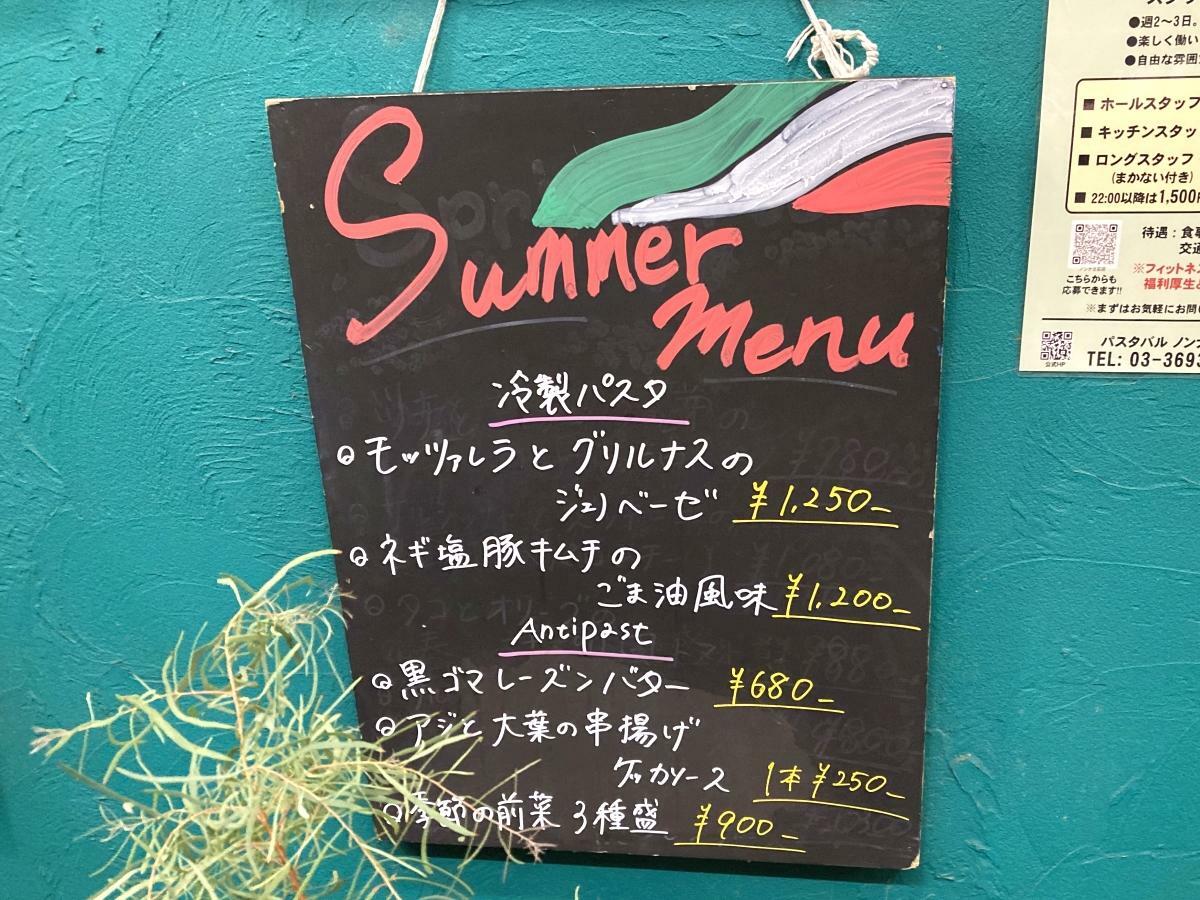 Summer
Menu
冷製パスタ
モッツァレラとグリルナスの
ジェノベーゼ ¥1,250-
ネギ塩豚キムチの
ごま油風味 ¥1,200-
Antipast
黒ゴマレーズンバター ¥680-
アジと大葉の串揚げ
ケッカソース 1本¥250-
季節の前菜3種盛 ¥900-
●週2〜3日。
●楽しく働い
●自由な雰囲
■ホールスタッフ
■キッチンスタッ
■ロングスタッフ
(まかない付き)
■22:00以降は1,500
待遇:食
交通
こちらからも
応募できます!!
※フィットネス
福利厚生
※まずはお気軽にお問
公式HP
パスタバル ノン
TEL: 03-369